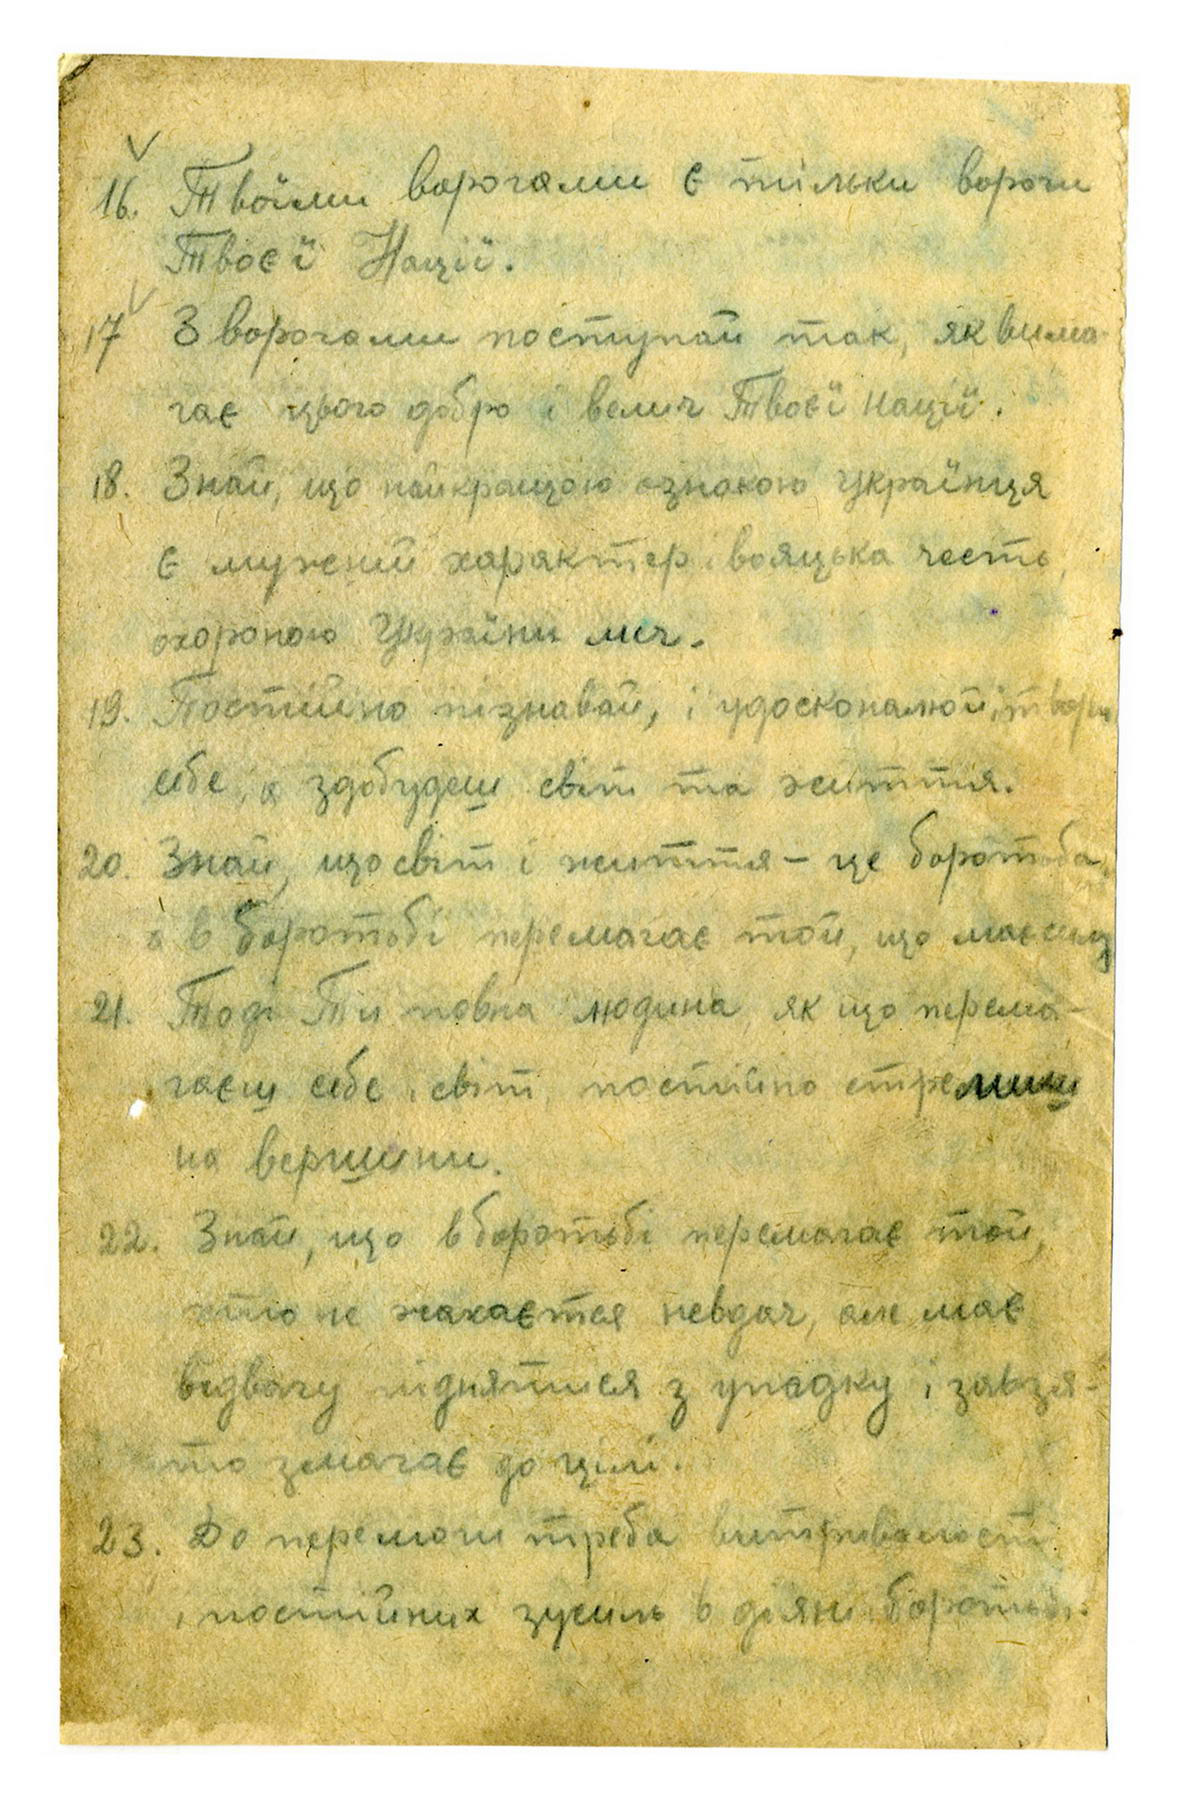 16. Твоїми ворогами є тільки вороги
Твоєї Нації.
17 З ворогами поступай так, як вима-
гає цього добро і велич Твоєї нації.
18. Знай, що найкращою ознакою Українця
є мужній характер і вояцька честь,
охороною України меч.
19. Постійно пізнавай, і удосконалюй, і твори
себе, а здобудеш світ та життя.
20. Знай, що світ і життя – це боротьба,
а в боротьбі перемагає той, що має силу
21. Тоді Ти повна людина, як що перема-
гаєш себе і світ постійно стремиш
на вершини.
22. Знай, що в боротьбі перемагає той,
хто не жахається невдач, але має
відвагу піднятися з упадку і завзя-
то змагає до цілі.
23. До перемоги треба витривалості
і постійних зусиль в діянні боротьбі.